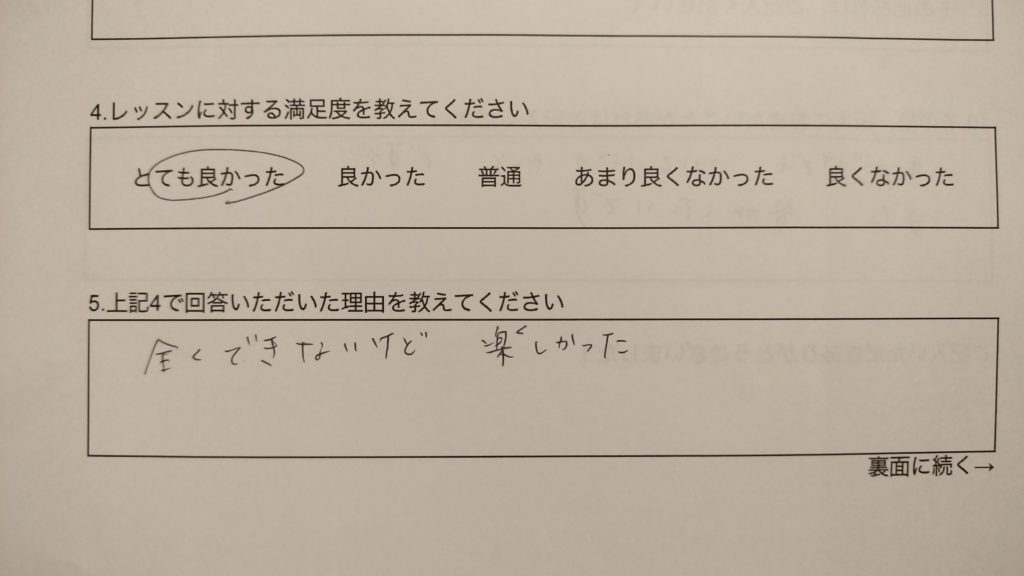 4.レッスンに対する満足度を教えてください
とても良かった 良かった 普通 あまり良くなかった 良くなかった
5.上記4で回答いただいた理由を教えてください
全くできないけど 楽しかった
裏面に続く→